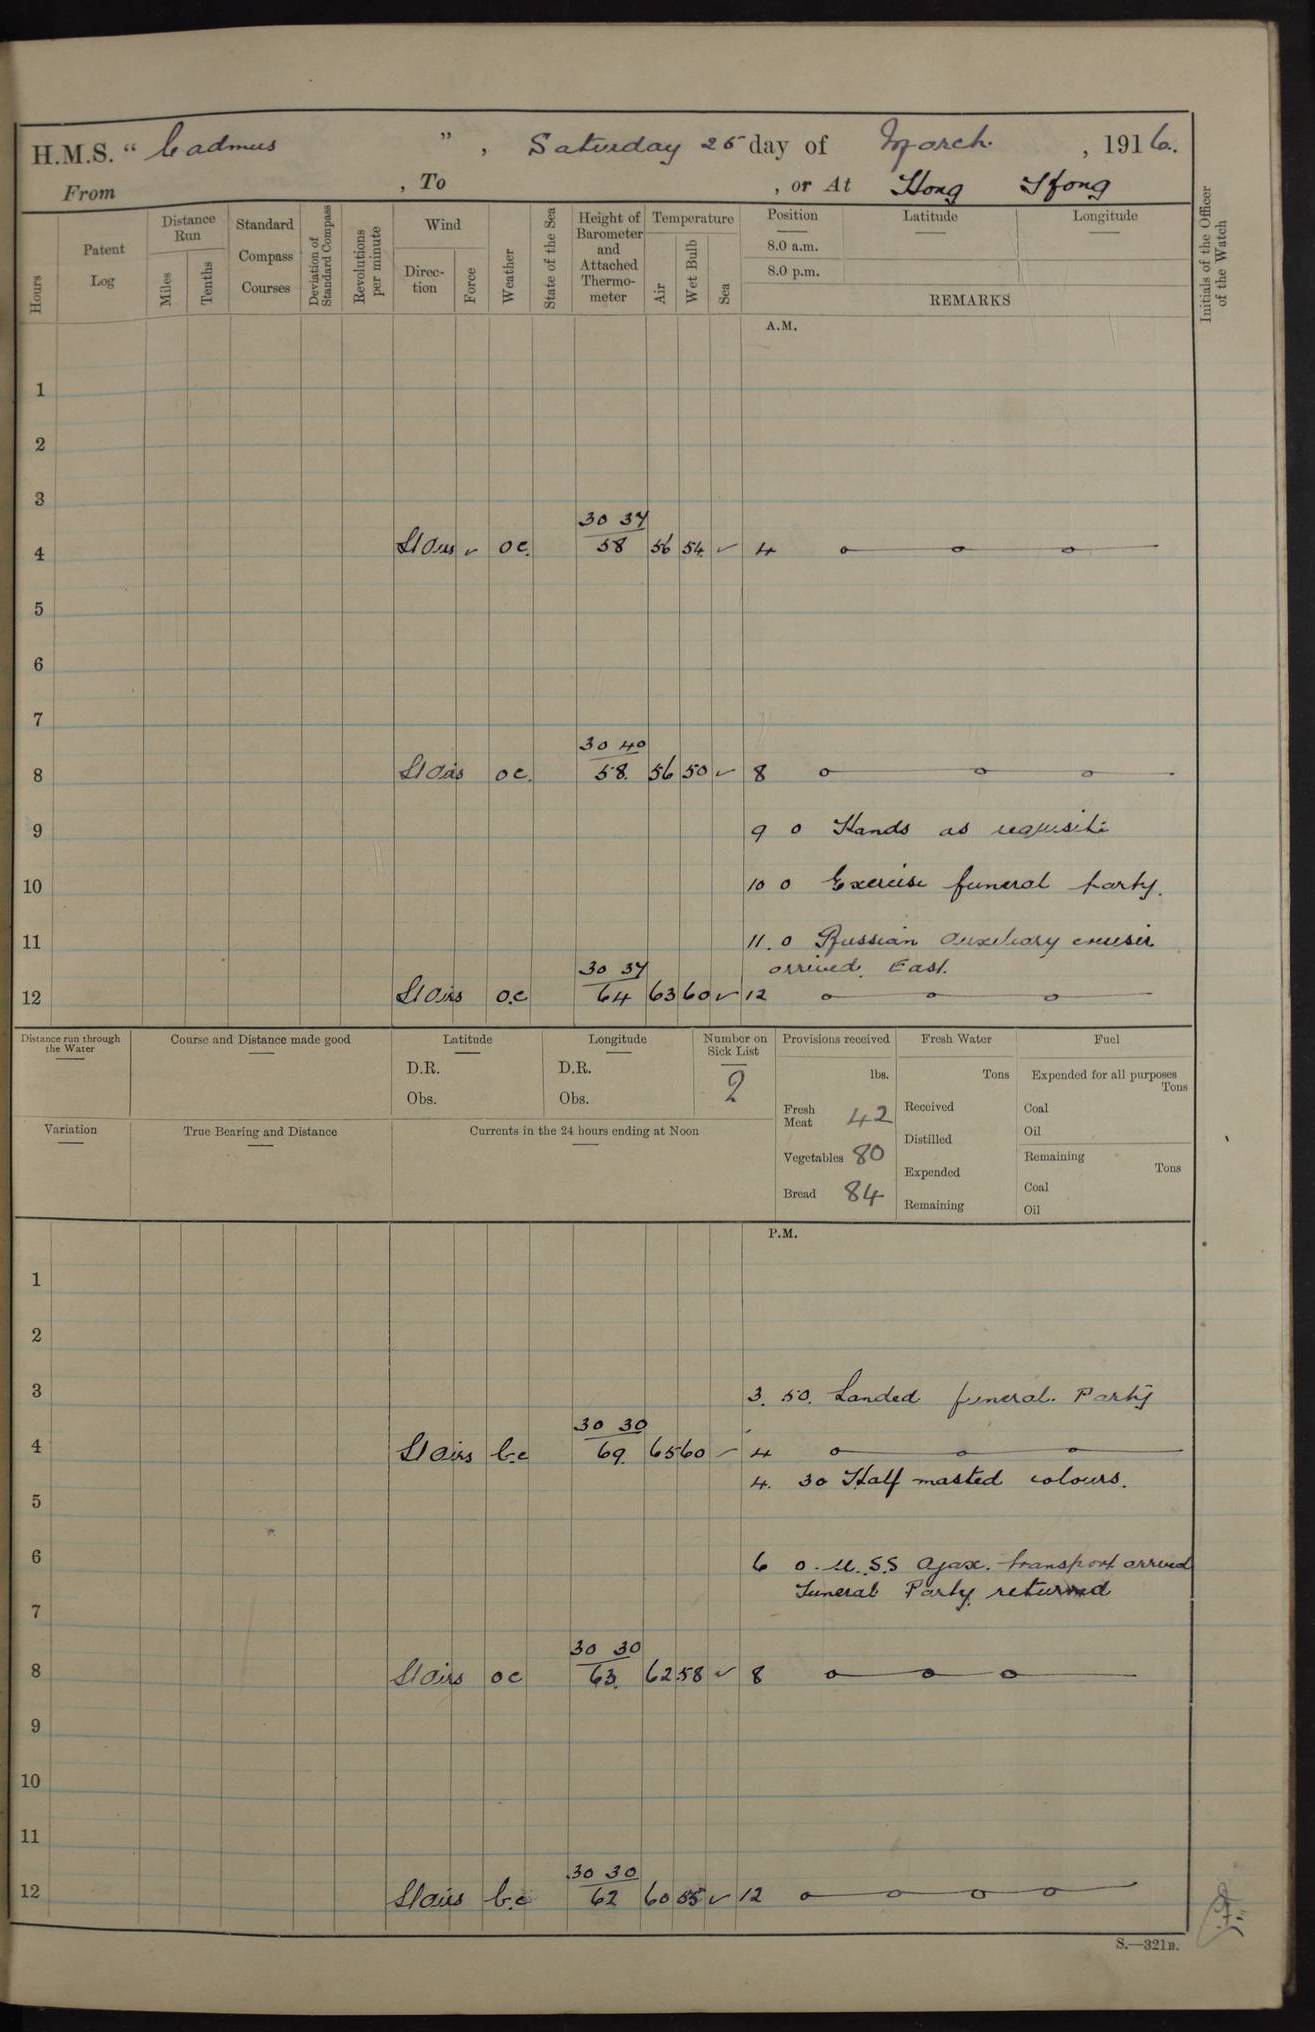 H.M.S. “ Cadmus ” , Saturday 25 day of March. , 1916.
From , To , or At Hong Kong
Hours
Patent Log
Distance Run
Miles
Tenths
Standard Compass Courses
Deviation of Standard Compass
Revolutions per minute
Wind
Direc-tion
Force
Weather
State of the Sea
Height of Barometer and Attached Thermo-meter
Temperature
Air
Wet Bulb
Sea
Position
Latitude
Longitude
8.0 a.m.
8.0 p.m.
REMARKS
Initials of the Officer of the Watch
A.M.
1
2
3
30 37
4 Lt Airs ✓ o c. 58 56 54 ✓ 4
5
6
7
30 40
8 Lt Airs o c. 58. 56 50 ✓ 8
9 9 0 Hands as requisite
10 10 0 Exercise funeral party.
11 11. 0 Russian Auxiliary cruiser
30 37 arrived. East.
12 Lt Airs o.c 64 63 60 ✓ 12
Distance run through the Water
Course and Distance made good
Latitude
D.R.
Obs.
Longitude
D.R.
Obs.
Number on Sick List
2
Provisions received
lbs.
Fresh Meat 42
Vegetables 80
Bread 84
Fresh Water
Tons
Received
Distilled
Expended
Remaining
Fuel
Expended for all purposes
Tons
Coal
Oil
Remaining
Tons
Coal
Oil
Variation
True Bearing and Distance
Currents in the 24 hours ending at Noon
P.M.
1
2
3 3. 50. Landed funeral. Party
30 30
4 Lt airs b.c 69. 65 60 – 4
4. 30 Half masted colours.
5
6 6 0. U.S.S Ajax. transport arrived
Funeral Party returned
7
30 30
8 Lt airs o c 63. 62 58 ✓ 8
9
10
11
30 30
12 Lt airs b.c 62 60 55 ✓ 12
S.—321B.